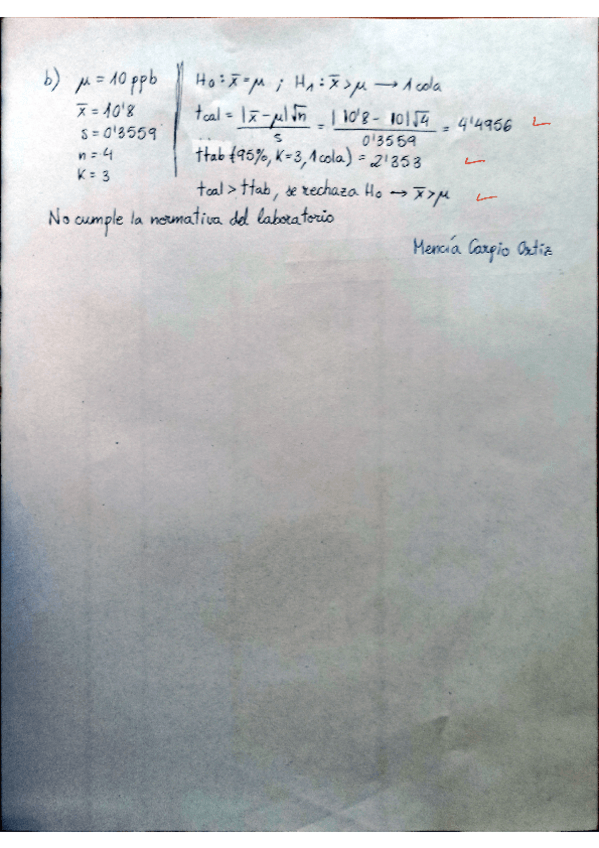 b) μ = 10 ppb
x̄ = 10'8
s = 0'3559
n = 4
K = 3
H₀ : x̄ = μ ; H₁ : x̄ > μ → 1 cola
tcal = |x̄ - μ|√n / s = |10'8 - 10|√4 / 0'3559 = 4'4956
ttab (95%, K=3, 1 cola) = 2'353
tcal > ttab, se rechaza H₀ → x̄ > μ
No cumple la normativa del laboratorio
Mencía Carpio Ortiz